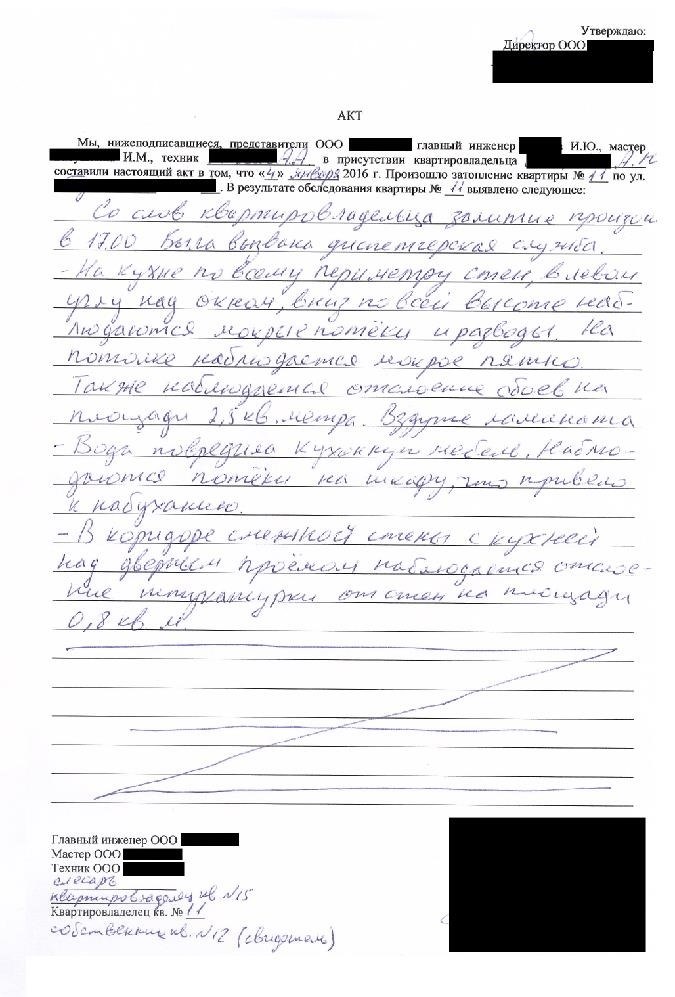 Утверждаю:
Директор ООО
АКТ
Мы, нижеподписавшиеся, представители ООО главный инженер И.Ю., мастер
И.М., техник А.А. в присутствии квартировладельца А.Н
составили настоящий акт в том, что «4» января 2016 г. Произошло затопление квартиры № 11 по ул.
. В результате обследования квартиры № 11 выявлено следующее:
Со слов квартировладельца залитие произош
в 17.00 Была вызвана диспетчерская служба.
- На кухне по всему периметру стен, в левом
углу над окном, вниз по всей высоте наб-
людаются мокрые потёки и разводы. На
потолке наблюдается мокрое пятно.
Также наблюдается отслоение обоев на
площади 2,5 кв. метра. Вздутие ламината
- Вода повредила кухонную мебель. Наблю-
даются потёки на шкафу, что привело
к набуханию.
- В коридоре смежной стены с кухней
над дверным проёмом наблюдается отсло-
ние штукатурки от стен на площади
0,8 кв м.
Главный инженер ООО
Мастер ООО
Техник ООО
слесарь
квартировладелец кв №15
Квартировладелец кв. № 11
собственник кв. №12 (свидетель)